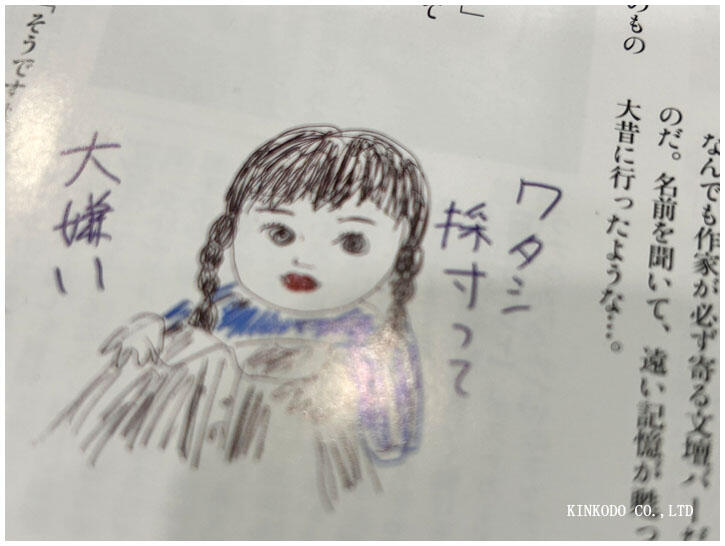 のもの
なんでも作家が必ず寄る文壇バーだ
のだ。名前を聞いて、遠い記憶が甦っ
大昔に行ったような…。
」
て
「そうです
ワタシ
採寸って
大嫌い
KINKODO CO.,LTD